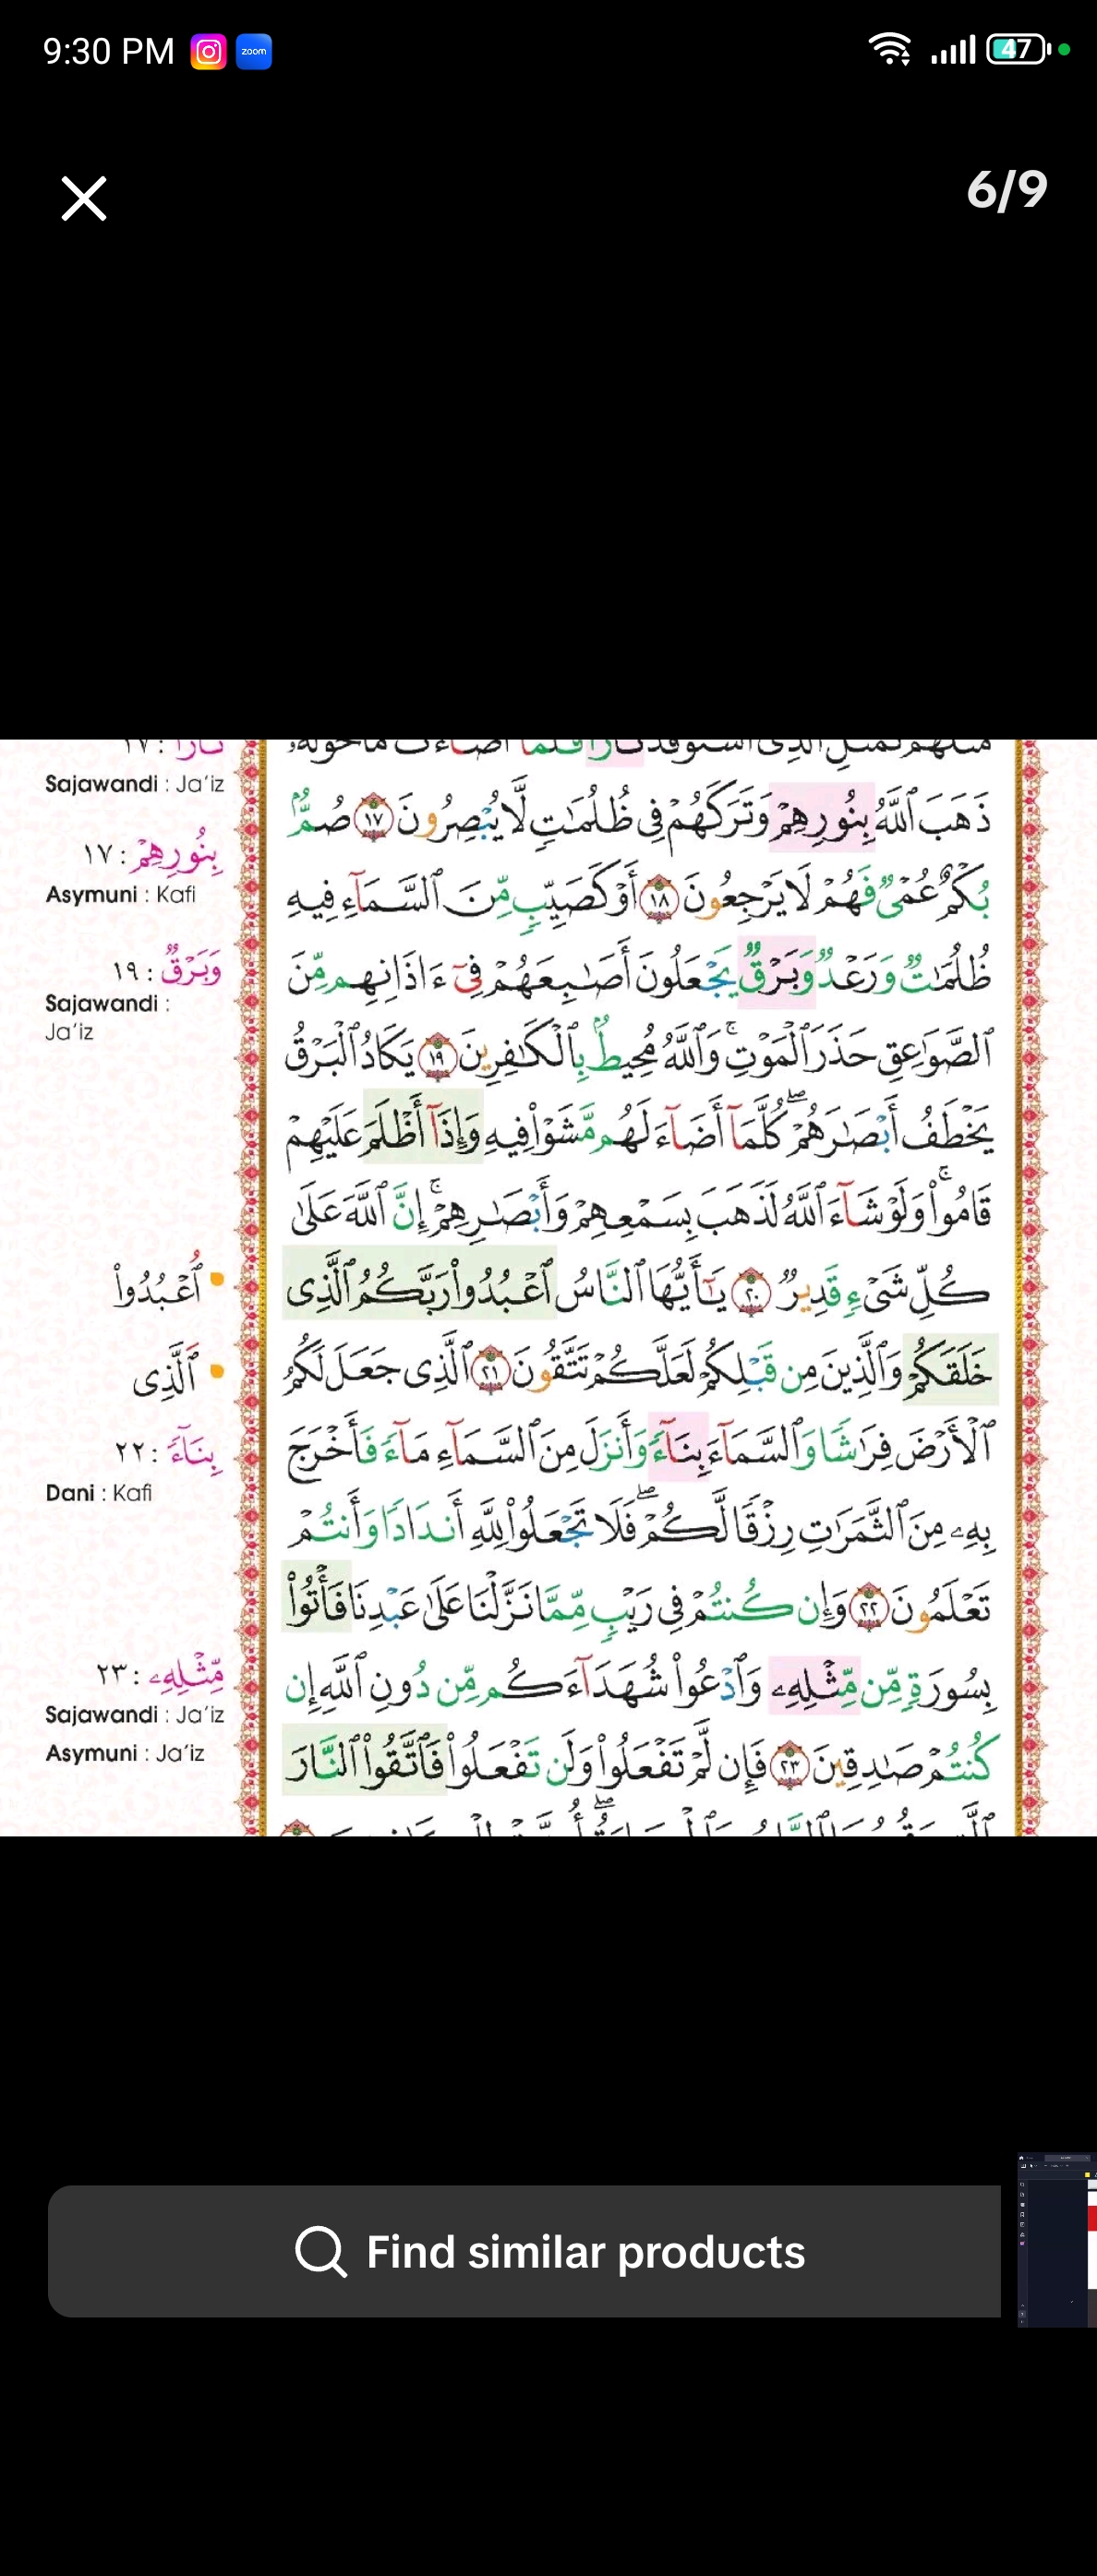 9:30 PM
zoom
47
6/9
نَارًا : ١٧
Sajawandi : Ja'iz
ذَهَبَ ٱللَّهُ بِنُورِهِمْ وَتَرَكَهُمْ فِى ظُلُمَٰتٍ لَّا يُبْصِرُونَ ١٧ صُمٌّۢ
بِنُورِهِمْ : ١٧
Asymuni : Kafi
بُكْمٌ عُمْىٌ فَهُمْ لَا يَرْجِعُونَ ١٨ أَوْ كَصَيِّبٍ مِّنَ ٱلسَّمَآءِ فِيهِ
وَبَرْقٌ : ١٩
Sajawandi :
Ja'iz
ظُلُمَٰتٌ وَرَعْدٌ وَبَرْقٌ يَجْعَلُونَ أَصَٰبِعَهُمْ فِىٓ ءَاذَانِهِم مِّنَ
ٱلصَّوَٰعِقِ حَذَرَ ٱلْمَوْتِ ۚ وَٱللَّهُ مُحِيطٌۢ بِٱلْكَٰفِرِينَ ١٩ يَكَادُ ٱلْبَرْقُ
يَخْطَفُ أَبْصَٰرَهُمْ ۖ كُلَّمَآ أَضَآءَ لَهُم مَّشَوْا۟ فِيهِ وَإِذَآ أَظْلَمَ عَلَيْهِمْ
قَامُوا۟ ۚ وَلَوْ شَآءَ ٱللَّهُ لَذَهَبَ بِسَمْعِهِمْ وَأَبْصَٰرِهِمْ ۚ إِنَّ ٱللَّهَ عَلَىٰ
كُلِّ شَىْءٍ قَدِيرٌ ٢٠ يَٰٓأَيُّهَا ٱلنَّاسُ ٱعْبُدُوا۟ رَبَّكُمُ ٱلَّذِى
ٱُعْبُدُوا۟
خَلَقَكُمْ وَٱلَّذِينَ مِن قَبْلِكُمْ لَعَلَّكُمْ تَتَّقُونَ ٢١ ٱلَّذِى جَعَلَ لَكُمُ
ٱَلَّذِى
ٱلْأَرْضَ فِرَٰشًا وَٱلسَّمَآءَ بِنَآءً وَأَنزَلَ مِنَ ٱلسَّمَآءِ مَآءً فَأَخْرَجَ
بِنَآءً : ٢٢
Dani : Kafi
بِهِۦ مِنَ ٱلثَّمَرَٰتِ رِزْقًا لَّكُمْ ۖ فَلَا تَجْعَلُوا۟ لِلَّهِ أَندَادًا وَأَنتُمْ
تَعْلَمُونَ ٢٢ وَإِن كُنتُمْ فِى رَيْبٍ مِّمَّا نَزَّلْنَا عَلَىٰ عَبْدِنَا فَأْتُوا۟
بِسُورَةٍ مِّن مِّثْلِهِۦ وَٱدْعُوا۟ شُهَدَآءَكُم مِّن دُونِ ٱللَّهِ إِن
مِّثْلِهِۦ : ٢٣
Sajawandi : Ja'iz
Asymuni : Ja'iz
كُنتُمْ صَٰدِقِينَ ٢٣ فَإِن لَّمْ تَفْعَلُوا۟ وَلَن تَفْعَلُوا۟ فَٱتَّقُوا۟ ٱلنَّارَ
Find similar products